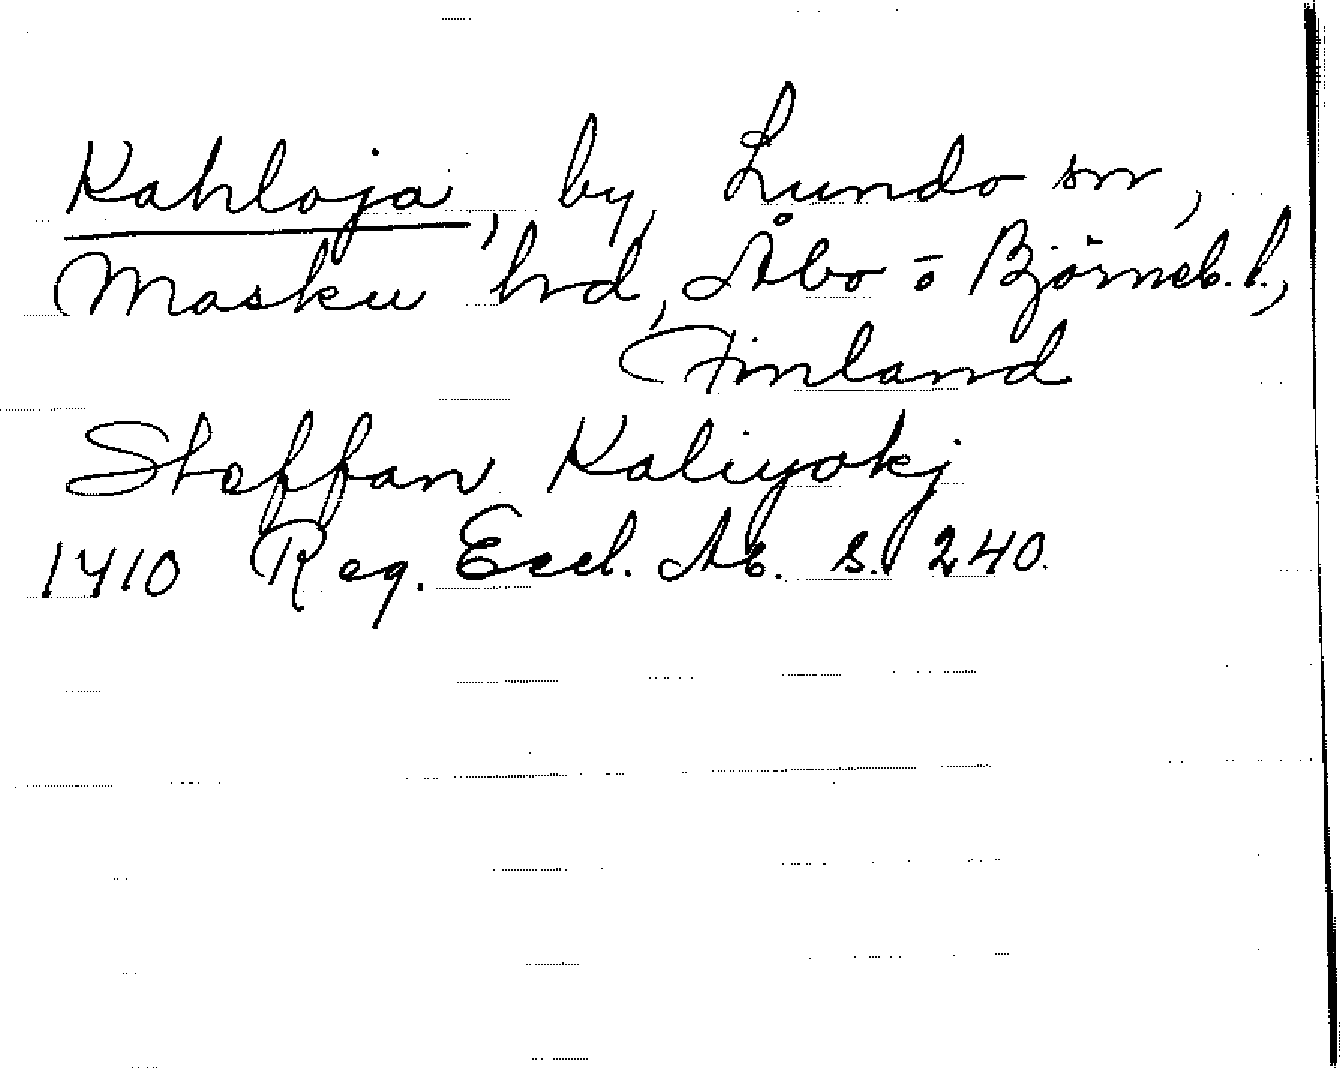 Kahloja, by, Lundo sn,
Masku hrd, Åbo o Björneb. l.,
Finland
Staffan Kaliyokj
1410 Reg. Eccl. Ab. s. 240.